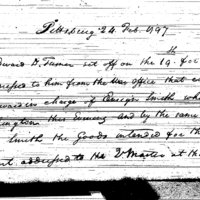 Pittsburg 24 Feb. 1797
th
dward D. Turner set off on the 19. for
to him from the War office that
in charge of Ensign Smith wh
ington this Evening and by the same
Smith the Goods intended for th
addressed to the Q Master at th